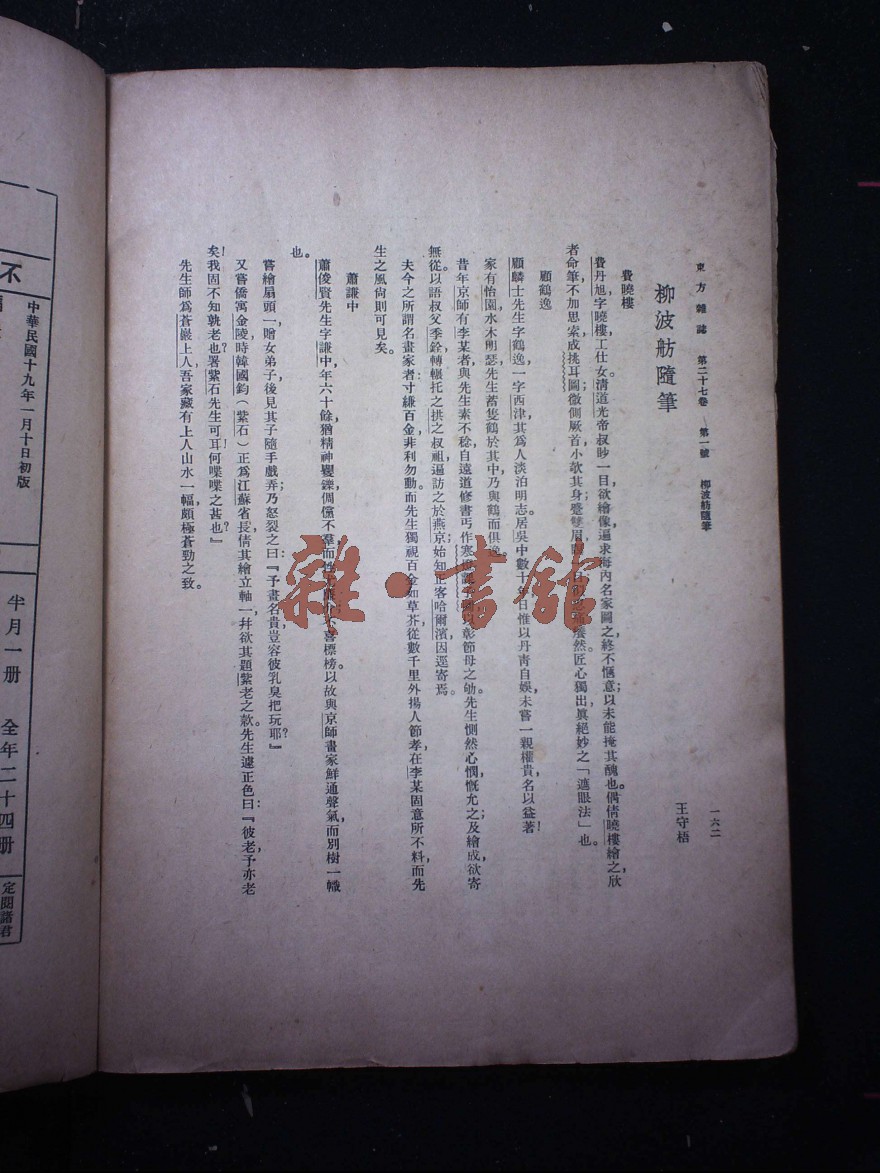 東方雜誌 第二十七卷 第一號 柳波舫隨筆
一六二
柳波舫隨筆
王守梧
費曉樓
費丹旭,字曉樓,工仕女。清道光帝叔眇一目,欲繪像,遍求海內名家圖之,終不愜意;以未能掩其醜也。偶倩曉樓繪之,欣
者命筆,不加思索,成挑耳圖;微側厥首,小欹其身,蹙雙眉,然。匠心獨出,眞絕妙之「遮眼法」也。
顧鶴逸
顧麟士先生字鶴逸,一字西津,其爲人淡泊明志。居吳中數十年,日惟以丹靑自娛,未嘗一親權貴,名以益著!
家有怡園,水木明瑟,先生蓄隻鶴於其中,乃與鶴而俱逸。
昔年京師有李某者,與先生素不稔,自遠道修書丐作寒以彰節母之劬。先生惻然心憫,慨允之;及繪成,欲寄
無從。以語叔父季銓,轉輾托之拱之叔祖,遍訪之於燕京,始知正客哈爾濱,因逕寄焉。
夫今之所謂名畫家者:寸縑百金,非利勿動。而先生獨視百金如草芥,從數千里外揚人節孝,在李某固意所不料,而先
生之風尙則可見矣。
蕭謙中
蕭俊賢先生字謙中,年六十餘,猶精神矍鑠,倜儻不羣;而性不喜標榜。以故與京師畫家鮮通聲氣,而別樹一幟
也。
嘗繪扇頭,一贈女弟子,後見其子隨手戲弄;乃怒裂之曰:『予畫名貴,豈容彼乳臭把玩耶?』
又嘗僑寓金陵,時韓國鈞(紫石)正爲江蘇省長,倩其繪立軸一幷欲其題紫老之款。先生遽正色曰:『彼老,予亦老
矣!我固不知孰老也?署紫石先生可耳,何喋喋之甚也?』
先生師爲蒼巖上人,吾家藏有上人山水一幅,頗極蒼勁之致。
不
中華民國十九年一月十日初版
半月一册 全年二十四册
定閱諸君
雜·書館